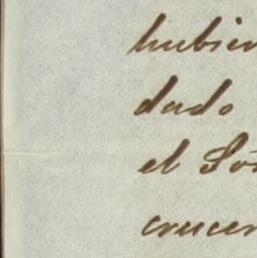 hubier
dado
el Señ
crucer